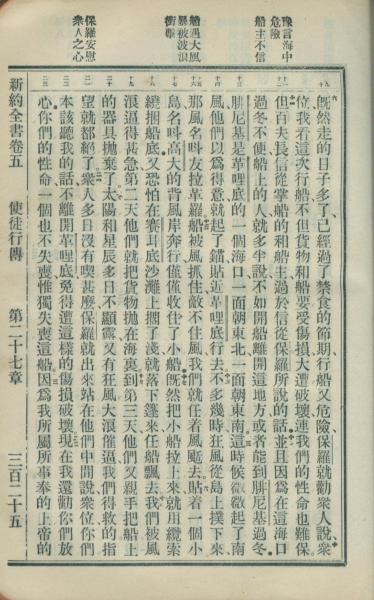 豫言海中
危險
船主不信
船遇大風
暴被波浪
衝擊
保羅安慰
衆人之心
旣然走的日子多了已經過了禁食的節期行船又危險保羅就勸衆人說衆
位我看這次行船不但貨物和船要受傷損大遭破壞連我們的性命也難保
但百夫長信從掌船的和船主過於信從保羅所說的話並且因爲在這海口
過冬不便船上的人就多半說不如開船離開這地方或者能到腓尼基過冬
腓尼基是革哩底的一個海口一面朝東北一面朝東南這時候微微起了南
風他們以爲得意就起了錨貼近革哩底行去不多幾時狂風從島上撲下來
那風名呌友拉革羅船被風抓住敵不住風我們就任着風颳去貼着一個小
島名呌高大的背風岸奔行僅僅收住了小船旣然把小船拉上來就用纜索
繞捆船底又恐怕在賽耳底沙灘上擱了淺就落下篷來任船飄去我們被風
浪逼得甚急第二天他們就把貨物抛在海裏到第三天他們又親手把船上
的器具抛棄了太陽和星辰多日不顯露又有狂風大浪催逼我們得救的指
望就都絕了衆人多日沒有喫甚麼保羅就出來站在他們中間說衆位你們
本該聽我的話不離開革哩底免得遭這樣的傷損破壞現在我還勸你們放
心你們的性命一個也不失喪惟獨失喪這船因爲我所屬所事奉的上帝的
新約全書卷五　使徒行傳　第二十七章　三百二十五